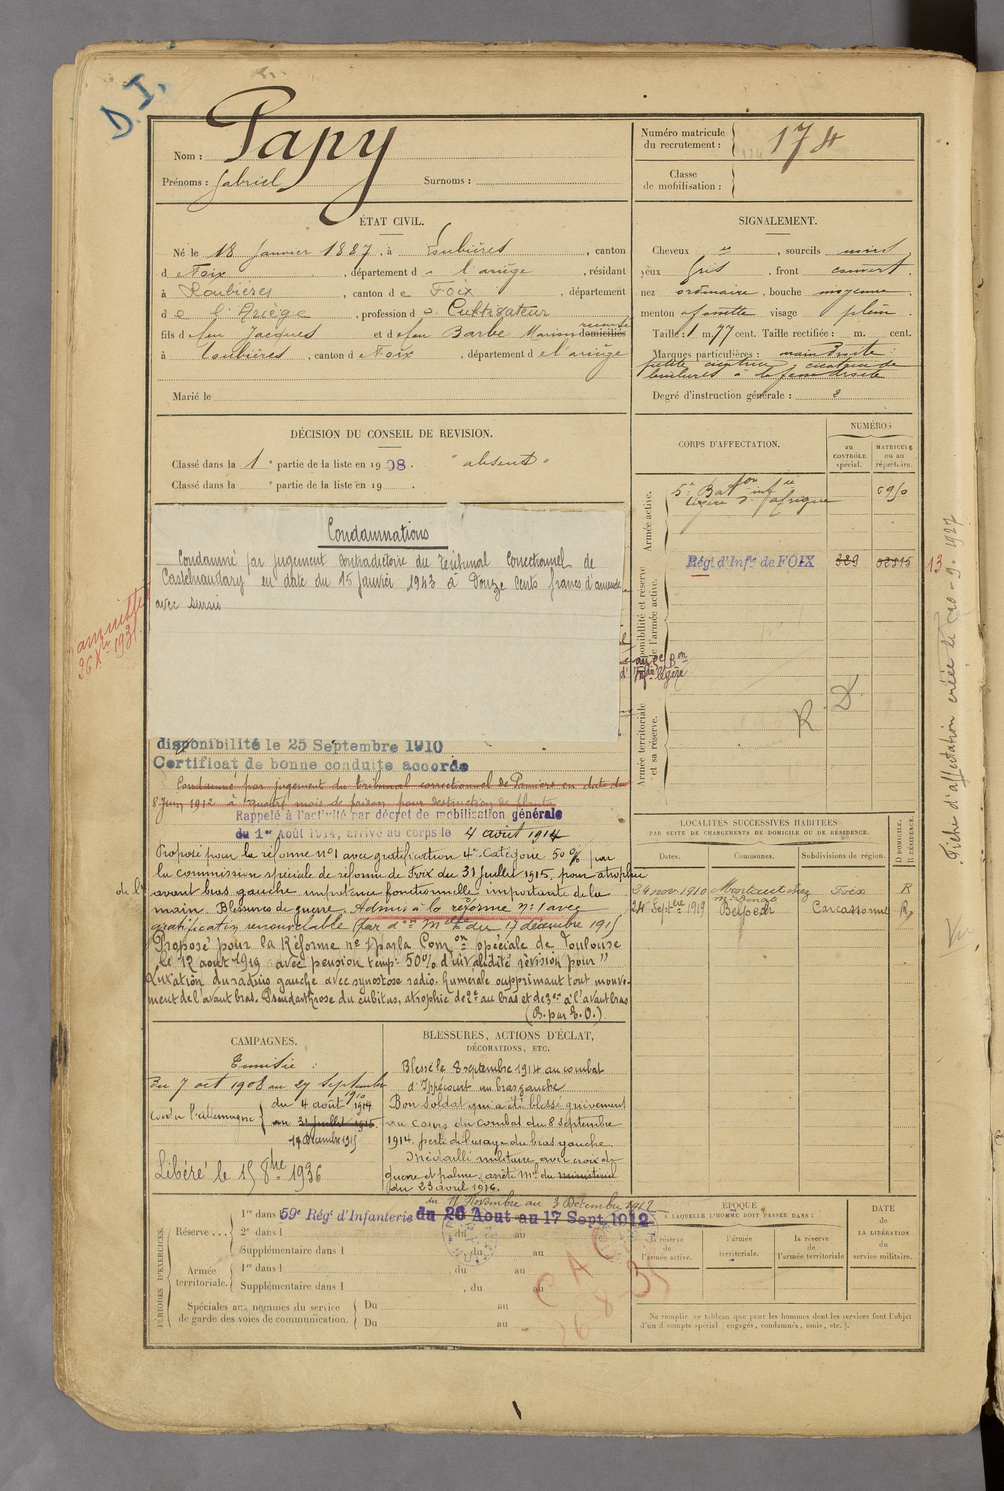 D. I.
Nom : Papy
Prénoms : Gabriel Surnoms :
Numéro matricule du recrutement : 174
Classe de mobilisation :
ÉTAT CIVIL.
Né le 18 Janvier 1887, à Loubières, canton
de Foix, département d l'ariège, résidant
à Loubières, canton de Foix, département
de l'Ariège, profession d Cultivateur
fils de feu Jacques et de feu Barbe Marion domiciliés
à Loubières, canton de Foix, département de l'ariège
Marié le
SIGNALEMENT.
Cheveux , sourcils noirs
yeux gris, front couvert
nez ordinaire, bouche moyenne
menton à fossette visage plein
Taille : 1 m. 77 cent. Taille rectifiée : m. cent.
Marques particulières : main droite
petite cicatrice, cicatrice de
brulures à la joue droite
Degré d'instruction générale : 2
DÉCISION DU CONSEIL DE REVISION.
Classé dans la 1e partie de la liste en 1908. "absent"
Classé dans la e partie de la liste en 19 .
CORPS D'AFFECTATION.
NUMÉROS
au CONTRÔLE spécial.
MATRICULE ou au répertoire.
Armée active.
5e Baton infie
légère d'afrique
Régt d'Infie de FOIX 329
13
Disponibilité et réserve de l'armée active.
Armée territoriale et sa réserve.
R. D
Condamnations
Condamné par jugement contradictoire du Tribunal correctionnel de
Castelnaudary en date du 15 janvier 1943 à Douze cents francs d'amende
avec sursis
annuité
26 Xbre 1931
au 5e Bon
Infie légère
disponibilité le 25 Septembre 1910
Certificat de bonne conduite accordé
Condamné par jugement du tribunal correctionnel de Pamiers en date du
8 Juin 1912 à quatre mois de prison pour destruction de plants
Rappelé à l'activité par décret de mobilisation générale
du 1er Août 1914, arrivé au corps le 4 août 1914
Proposé pour la réforme no 1 avec gratification 4e Catégorie 50% par
la commission spéciale de réforme de Foix du 31 juillet 1915, pour atrophie
de l'avant bras gauche impotence fonctionnelle importante de la
main. Blessures de guerre. Admis à la réforme no 1 avec
gratification renouvelable (par don Melle du 17 décembre 1915
Proposé pour la Réforme no 1 par la Comon spéciale de Toulouse
le 12 août 1919 avec pension temp: 50% d'invalidité révision pour "
Luxation du radius gauche avec synostose radio-humérale supprimant tout mouve-
ment de l'avant bras. Pseudarthrose du cubitus, atrophie de 2c au bras et de 3c à l'avant bras
(B. par E. O.)
LOCALITÉS SUCCESSIVES HABITÉES
PAR SUITE DE CHANGEMENTS DE DOMICILE OU DE RÉSIDENCE.
Dates. Communes. Subdivisions de région. D DOMICILE. R RÉSIDENCE.
24 nov 1910 Foix R
24 Septbre 1919 Belpech Carcassonne R
Fiche d'affectation créée le 20-9-1927
Vu
CAMPAGNES.
Tunisie :
Du 7 oct 1908 au 27 Septembre 1910
Contre l'allemagne du 4 août 1914
au 31 juillet 1915
17 décembre 1915
Libéré le 15 8bre 1936
BLESSURES, ACTIONS D'ÉCLAT,
DÉCORATIONS, ETC.
Blessé le 8 septembre 1914 au combat
d'Ippécourt au bras gauche
Bon soldat qui a été blessé grièvement
au cours du combat du 8 septembre
1914. perte de l'usage du bras gauche
Médaillé militaire, avec croix de
guerre et palme, arrêté Mel du ministériel
du 23 avril 1916.
PÉRIODES D'EXERCICES.
Réserve...
1re dans l 59e Régt d'Infanterie du 26 Aout au 17 Sept 1912
du 11 Novembre au 3 Décembre 1912
2e dans l du au
Supplémentaire dans l du au
Armée territoriale.
1re dans l du au
Supplémentaire dans l , du au
Spéciales aux hommes du service de garde des voies de communication.
Du au
Du au
C A C
26-8-35
ÉPOQUE
À LAQUELLE L'HOMME DOIT PASSER DANS :
la réserve de l'armée active.
l'armée territoriale.
la réserve de l'armée territoriale
DATE DE LA LIBÉRATION du service militaire.
Ne remplir ce tableau que pour les hommes dont les services font l'objet
d'un décompte spécial (engagés, condamnés, omis, etc.).